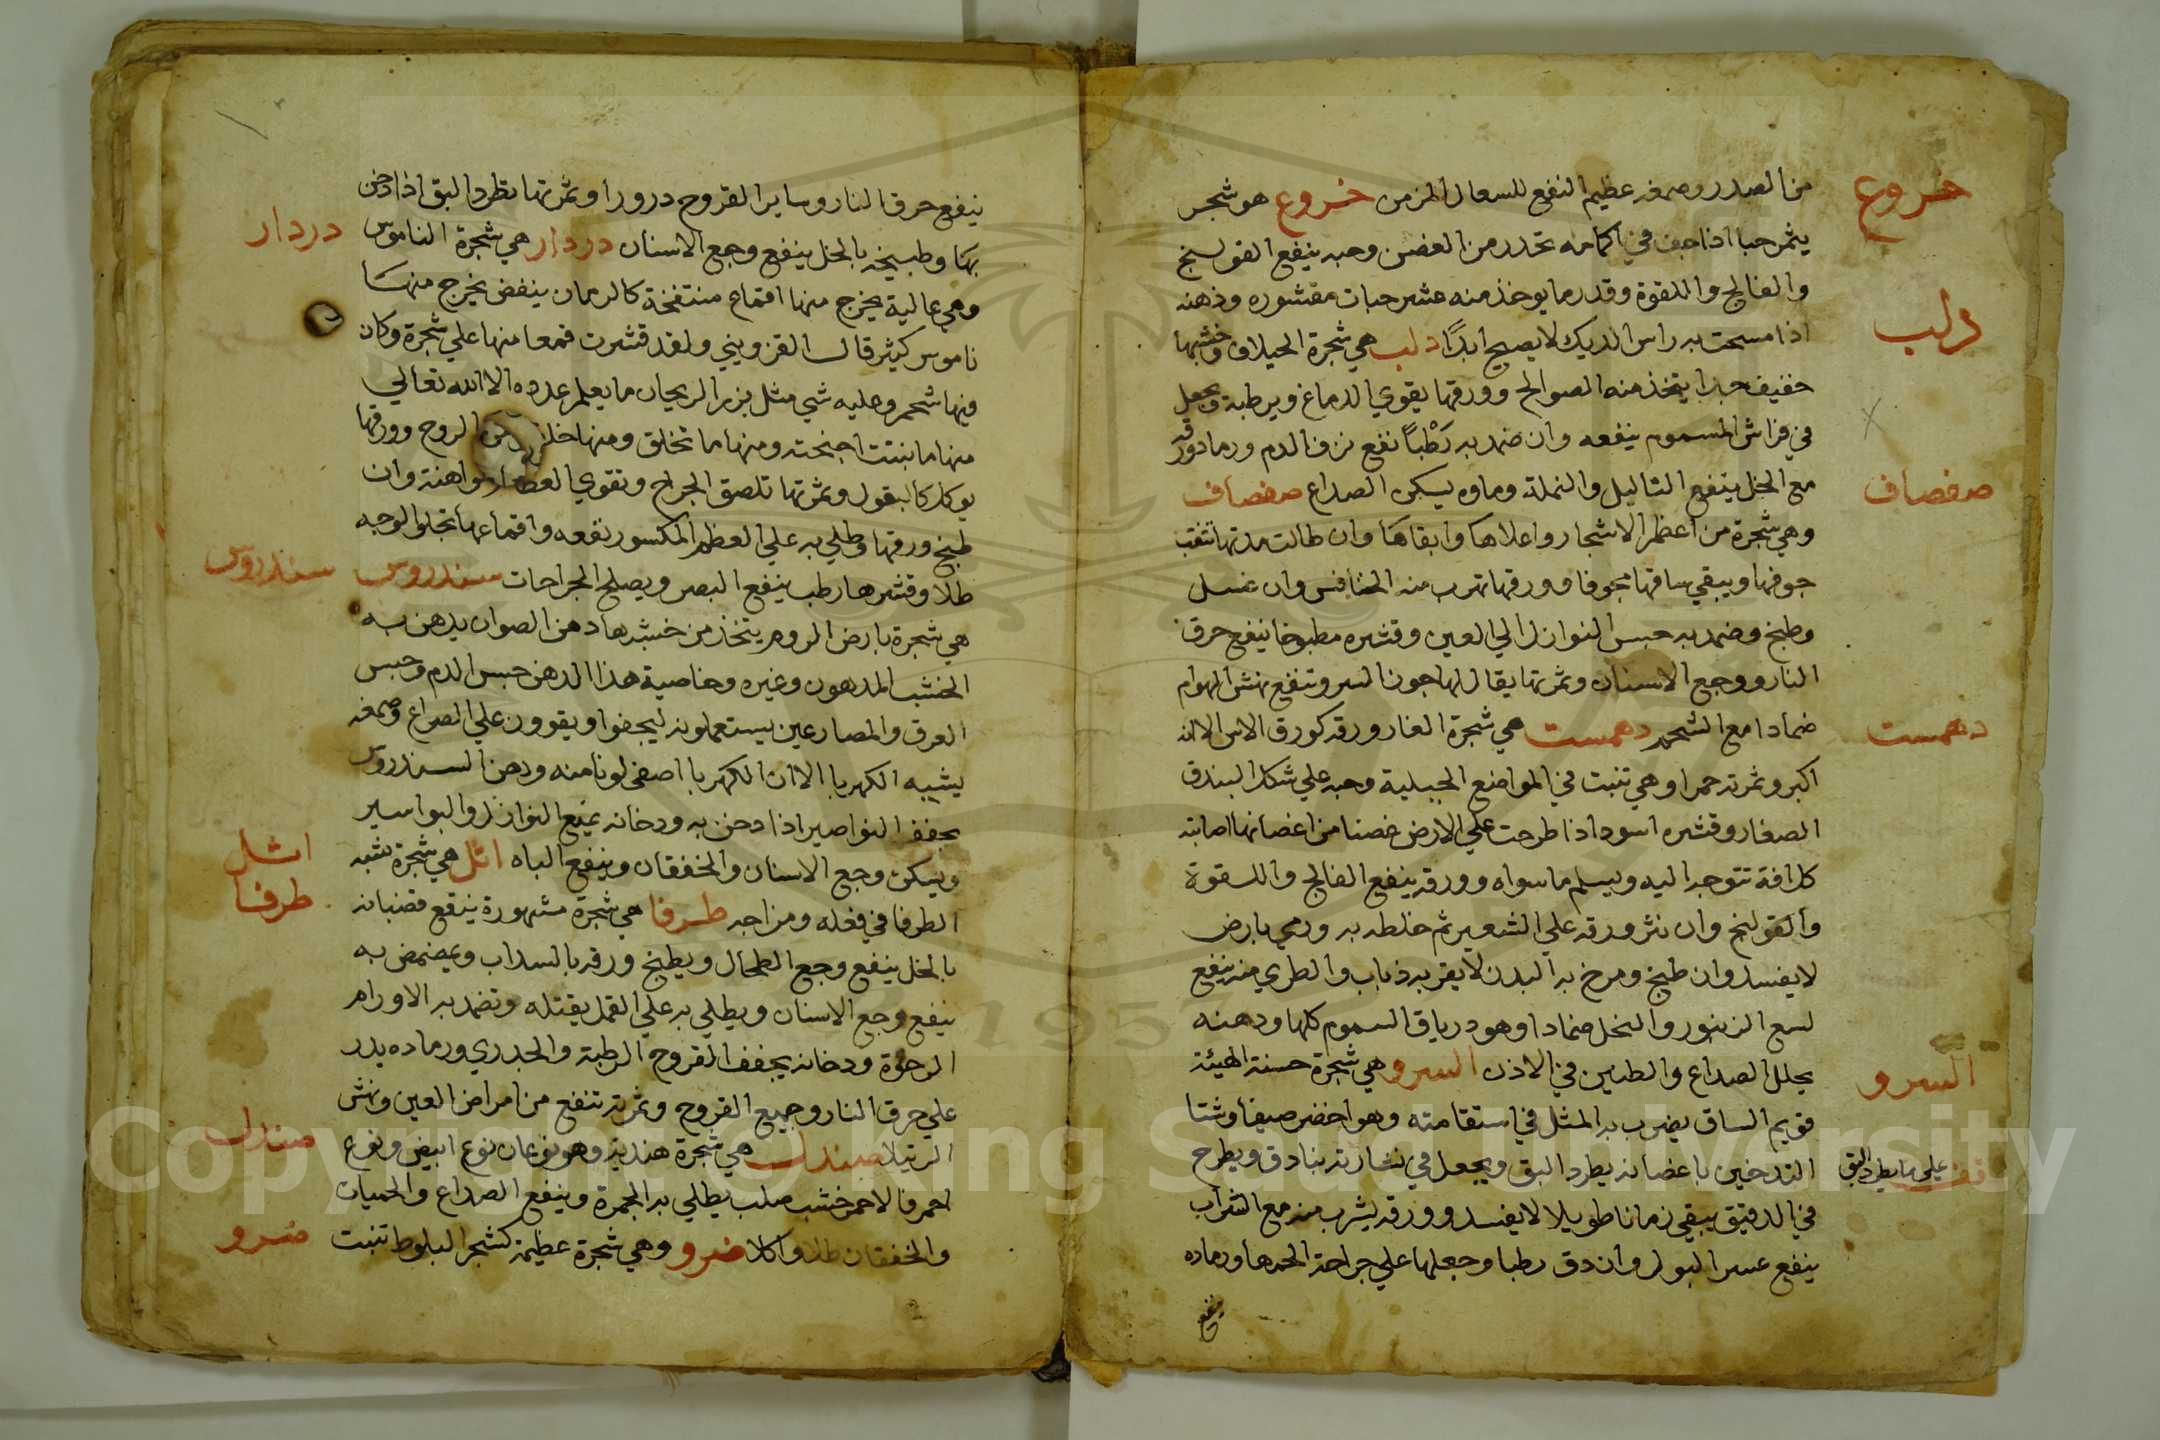 خروع
من الصدر وصمغه عظيم النفع للسعال المزمن خروع هو شجر
يثمر حبا اذا جف في اكمامه تحدر من الغصن وحبه ينفع القولنج
والفالج واللقوة وقدر ما يوخذ منه عشر حبات مقشوره ودهنه
دلب
اذا مسحت به راس الديك لا يصيح ابدًا دلب هي شجرة الحيلاف وخشبها
خفيف جدا يتخذ منه الصوالج وورقها يقوي الدماغ ويرطبه ويجعل
في فراش المسموم ينفعه وان ضمد به رَطْباً نفع نزف الدم ورماد ورقه
صفصاف
مع الخل ينفع الثاليل والنملة وماوه يسكن الصداع صفصاف
وهي شجرة من اعظم الاشجار واعلاها وابقاها وان طالت مدتها تثقب
جوفها ويبقي ساقها مجوفا وورقها تهرب منه الخنافس وان غسل
وطبخ وضمد به حبس النوازل الي العين وقشره مطبوخا ينفع حرق
النار ووجع الاسنان وثمرتها يقال لها جون السر وتنفع نهش الهوام
دهمست
ضمادا مع الشحم دهمست هي شجرة الغار ورقه كورق الاس الا انه
اكبر وثمرته حمرا وهي تنبت في المواضع الجبلية وحبه علي شكل البندق
الصغار وقشره اسود اذا طرحت علي الارض غصنا من اغصانها اصابته
كل افة تتوجه اليه ويسلم ما سواه وورقه ينفع الفالج واللقوة
والقولنج وان نثر ورقه علي الشعير ثم خلطه به ورمي بارض
لا يفسد وان طبخ ومرخ به البدن لا يقربه ذباب والطري منه ينفع
لسع الزنبور والنحل ضمادا وهو درياق السموم كلها ودهنه
السرو
يحلل الصداع والطنين في الاذن السرو هي شجرة حسنة الهيئة
قويم الساق يضرب به المثل في استقامته وهو اخضر صيفا وشتا
علي ما يطرد البق
التدخين باغصانه يطرد البق ويجعل في نشارته بنادق ويطرح
في الدقيق يبقي زمانا طويلا لا يفسد وورقه يشرب منه مع الشراب
ينفع عسر البول وان دق رطبا وجعلها علي جراحة الحمها ورماده
ينفع
ينفع حرق النار وساير القروح درورا وثمرتها يطرد البق اذا دخن
دردار
بها وطبيخه بالخل ينفع وجع الاسنان دردار هي شجرة الناموس
وهي عالية يخرج منها اقماع منتفخة كالرمان ينفض يخرج منها
ناموس كثير قال القزويني ولقد قشرت قمعا منها علي شجرة وكان
فيها شحم وعليه شي مثل بزر الريحان ما يعلم عدده الا الله تعالي
منها ما نبتت اجنحته ومنها ما تخلق ومنها الروح وورقها
يوكل كالبقول وثمرتها تلصق الجراح وتقوي العظام الواهنة وان
طبخ ورقها وطلي به علي العظم المكسور نفعه واقماعها تجلو الوجه
سندروس
طلا وقشرها رطب ينفع البصر ويصلح الجراحات سندروس
هي شجرة بارض الروم يتخذ من خشبها دهن الصوان يدهن به
الخشب المدهون وغيره وخاصية هذا الدهن حبس الدم وحبس
العرق والمصارعين يستعملونه ليجفوا ويقوون علي الصراع وصمغه
يشبه الكهربا الا ان الكهربا اصفي لونا منه ودهن السندروس
يجفف النواصير اذا دخن به ودخانه يمنع النوازل والبواسير
اثل
ويسكن وجع الاسنان والخفقان وينفع الباه اثل هي شجرة تشبه
طرفا
الطرفا في فعله ومزاجه طرفا هي شجرة مشهورة ينقع قضبانه
بالخل ينفع وجع الطحال ويطبخ ورقه بالسداب ويمضمض به
ينفع وجع الاسنان ويطلي به علي القمل يقتله وتضمد به الاورام
الرخوة ودخانه يجفف القروح الرطبة والجدري ورماده يدر
علي حرق النار وجميع القروح وثمرته تنفع من امراض العين ونهش
صندل
الرتيلا صندل هي شجرة هندية وهو نوعان نوع ابيض ونوع
احمر فالاحمر خشب صلب يطلي به الجمرة وينفع الصداع والحميات
ضرو
والخفقان طلا واكلا ضرو وهي شجرة عظيمة كشجر البلوط تنبت